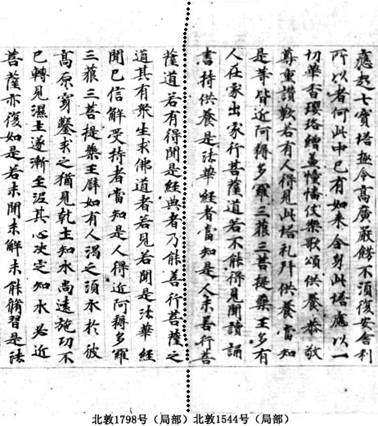 應起七寶塔極令高廣嚴飾不湏復安舍利
所以者何此中已有如来全身此塔應以一
切華香瓔珞繒蓋幢幡伎樂歌頌供養恭敬
尊重讚歎若有人得見此塔礼拜供養當知
是等皆近阿耨多羅三藐三菩提藥王多有
人在家出家行菩薩道若不能得見聞讀誦
書持供養是法華經者當知是人未善行菩
薩道若有得聞是經典者乃能善行菩薩之
道其有衆生求佛道者若見若聞是法華經
聞已信解受持者當知是人得近阿耨多羅
三藐三菩提藥王譬如有人渴乏湏水於彼
高原穿鑿求之猶見乾土知水尚遠施功不
已轉見濕土遂漸至泥其心決定知水必近
菩薩亦復如是若未聞未解未能脩習是法
北敦1798号（局部）北敦1544号（局部）